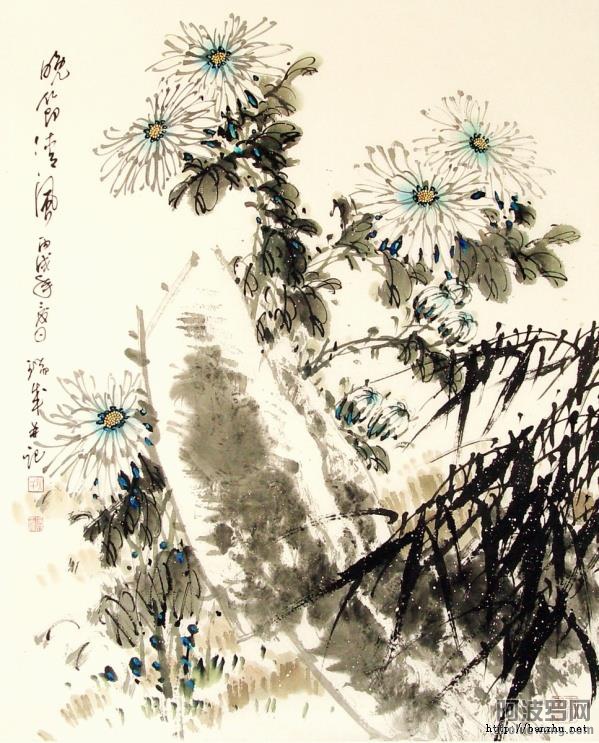 晚節清風
丙戌年夏日
瑞成并记
阿波罗网
http://banzhu.net